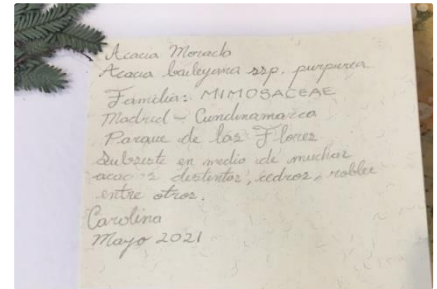 Acacia Morada
Acacia baileyana ssp. purpurea
Familia: MIMOSACEAE
Madrid - Cundinamarca
Parque de las Flores
Subsiste en medio de muchas
acacias distintas, cedros, robles
entre otros.
Carolina
Mayo 2021